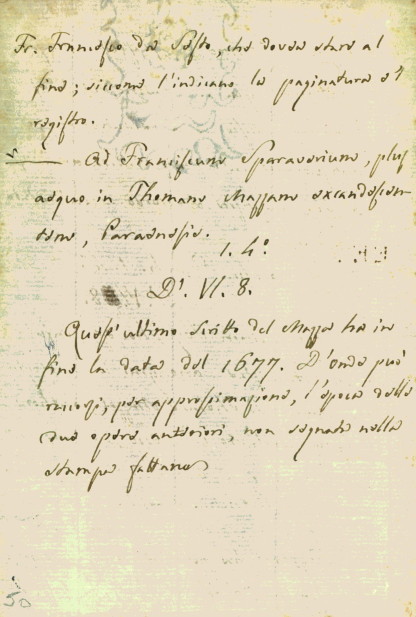 Fr. Francesco da Sesto, che dovea stare al
fine; siccome l'indicano la paginatura e'l
registro.
— Ad Franciscum Sparavorium, plus
aequo in Thomam Mazzam excandescen-
tem, Paraenesis.
1. 4.º
D'. VI. 8.
Quest'ultimo scritto del Mazza ha in
fine la data del 1677. D'onde può
trarsi, per approssimazione, l'epoca delle
due opere anteriori, non segnata nella
stampa fattane
50